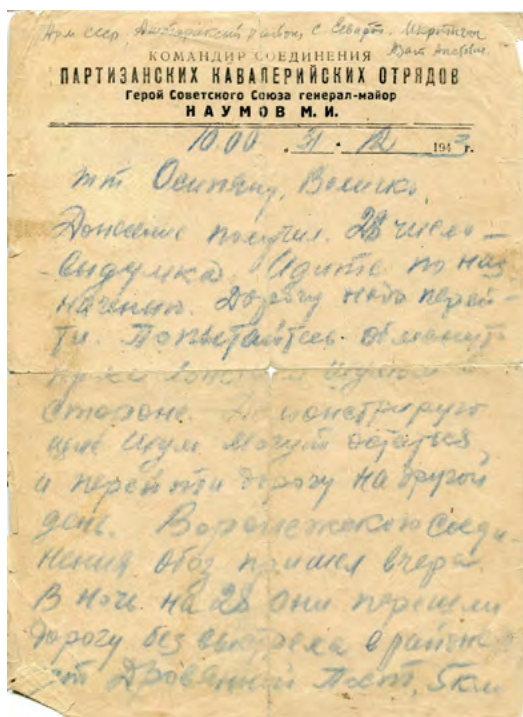 Арм сср, район, с.
КОМАНДИР СОЕДИНЕНИЯ
ПАРТИЗАНСКИХ КАВАЛЕРИЙСКИХ ОТРЯДОВ
Герой Советского Союза генерал-майор
НАУМОВ М. И.
10.00 „31 • 12 1943 г.
тт Осипяну, Величко,
Донесение получил. 28 число —
— выдумка. Идите по наз
начению. Дорогу надо перей-
ти. Попытайтесь обмануть
шумом в
стороне. Демонстрирую
щие шум могут остаться
и перейти дорогу на другой
день. Воронежского соеди-
нения обоз пришел вчера.
В ночь на 28 они перешли
дорогу без выстрела в районе
ст Дровяной Пост, 5 км